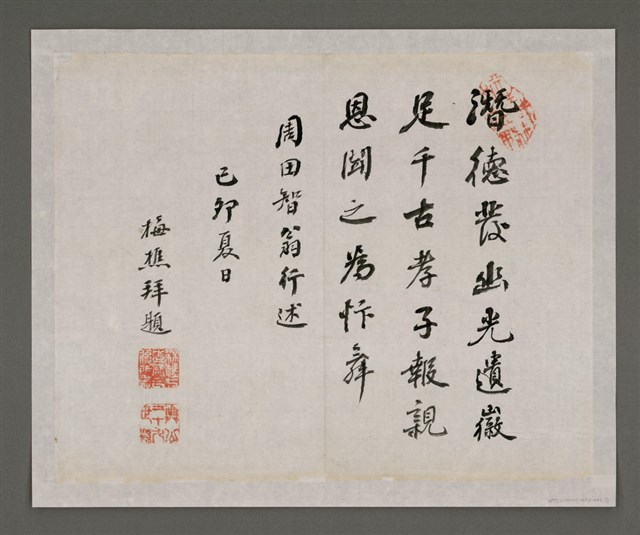 潛德發幽光遺徽
足千古孝子報親
恩聞之為忭舞
周田智翁行述
己卯夏日
梅樵拜題